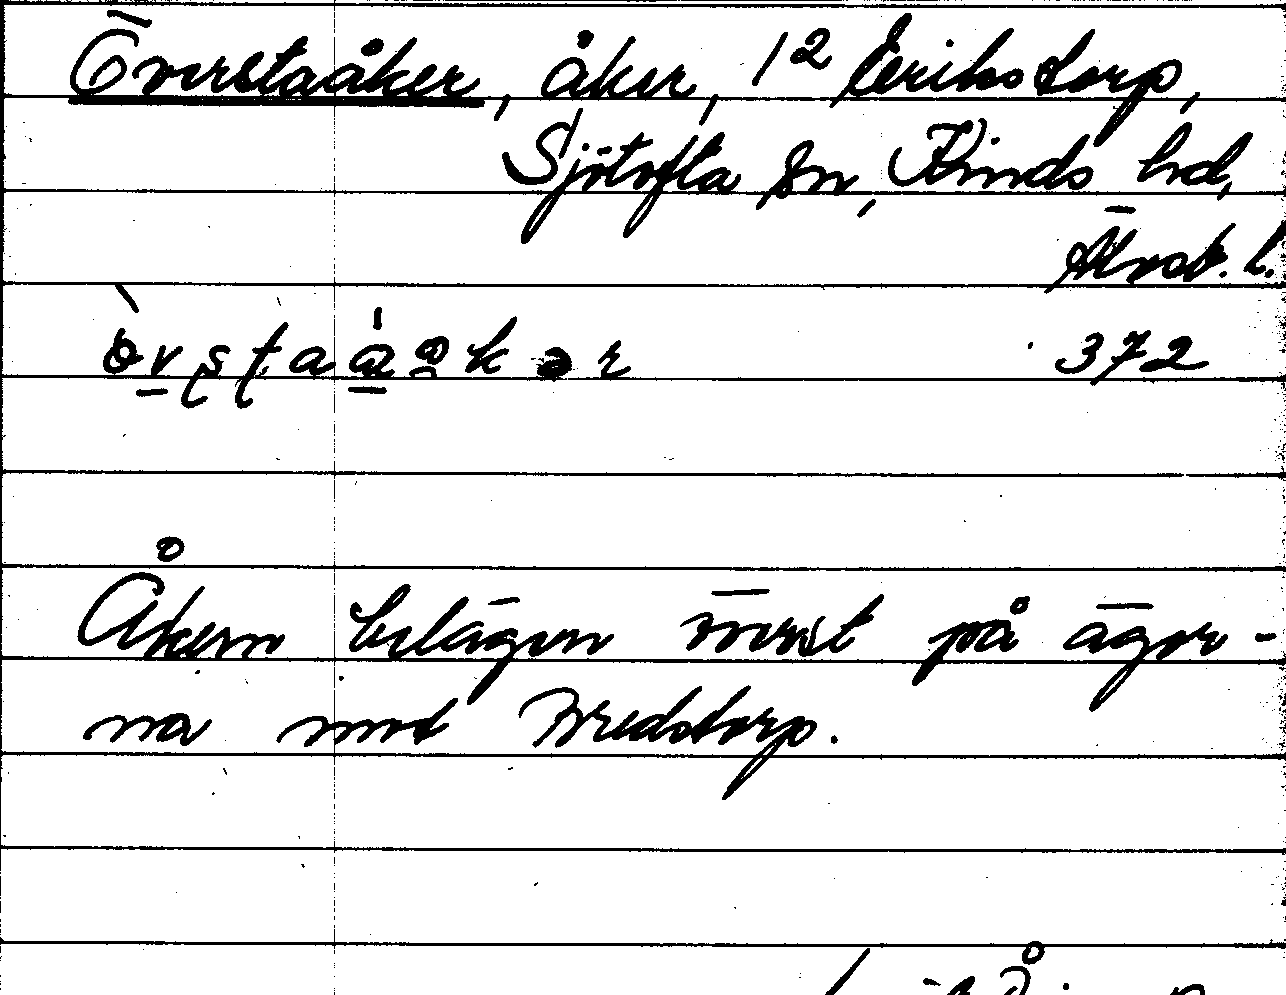 Överstaåker, åker, 1² Eriksstorp,
Sjötofta sn, Kinds hd,
Älvsb. l.
372
Åkern belägen överst på ägor-
na mot Bredstorp.